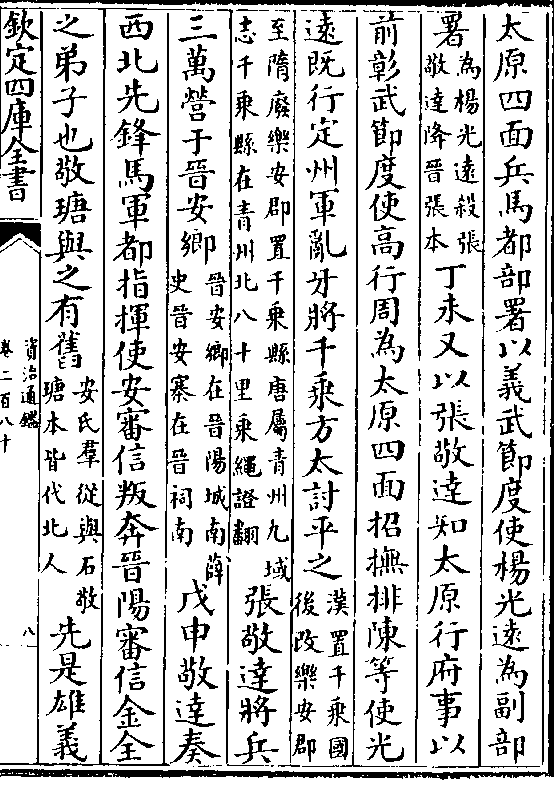 太原四面兵馬都部署以義武節度使楊光遠為副部
署為楊光遠殺張敬達降晉張本丁未又以張敬達知太原行府事以
前彰武節度使高行周為太原四面招撫排陳等使光
遠既行定州軍亂牙將千乘方太討平之漢置千乘國後改樂安郡
至隋廢樂安郡置千乘縣唐屬青州九域志千乘縣在青州北八十里乘繩證翻張敬達將兵
三萬營于晉安鄉晉安鄉在晉陽城南薛史晉安寨在晉祠南戊申敬達奏
西北先鋒馬軍都指揮使安審信叛奔晉陽審信金全
之弟子也敬瑭與之有舊安氏羣從與石敬瑭本皆代北人先是雄義
欽定四庫全書
資治通鑑
卷二百八十
八